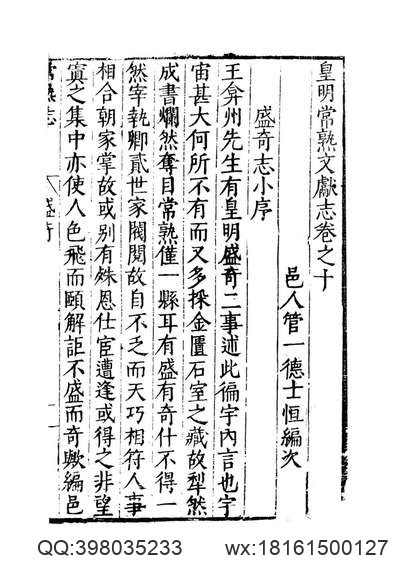 皇明常熟文獻志卷之十
邑人管一德士恒編次
盛奇志小序
王弇州先生有皇明盛奇二事述此徧宇內言也宇
宙甚大何所不有而又多採金匱石室之藏故犁然
成書爛然奪目常熟僅一縣耳有盛有奇什不得一
然宰執卿貳世家閥閱故自不乏而天巧相符人事
相合朝家掌故或別有殊恩仕宦遭逢或得之非望
寘之集中亦使人色飛而頤解詎不盛而奇歟編邑
常熟志
盛奇
一
QQ:398035233 wx:18161500127